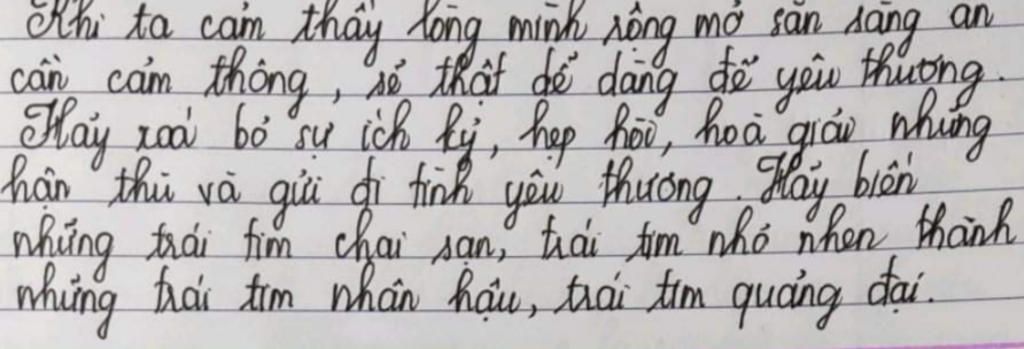 Khi ta cảm thấy lòng mình rộng mở sẵn sàng ân
cần cảm thông, sẽ thật dễ dàng để yêu thương.
Hãy xoá bỏ sự ích kỷ, hẹp hòi, hoà giải những
hận thù và gửi đi tình yêu thương. Hãy biến
những trái tim chai sạn, trái tim nhỏ nhen thành
những trái tim nhân hậu, trái tim quảng đại.